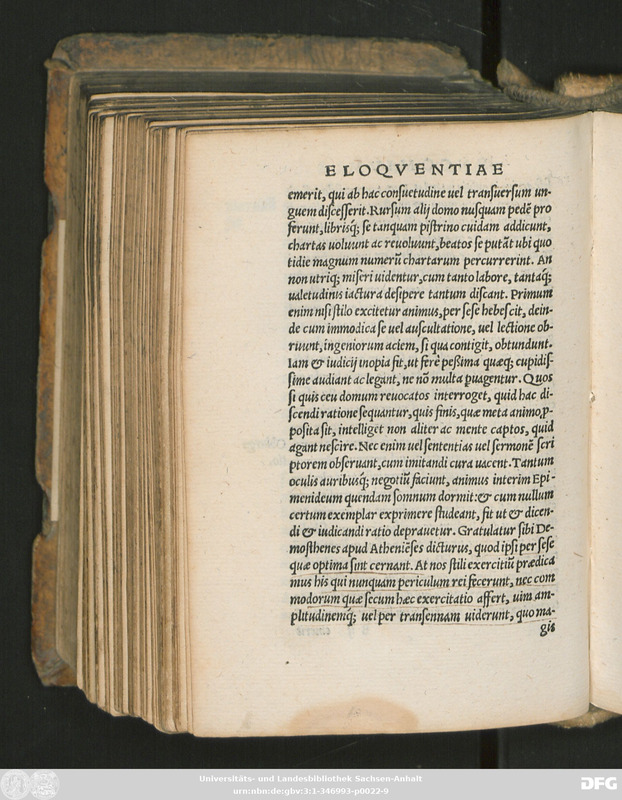 ELOQVENTIAE
emerit, qui ab hac consuetudine uel transuersum un-
guem discesserit. Rursum alij domo nusquam pedē pro
ferunt, librisq; se tanquam pistrino cuidam addicunt,
chartas uoluunt ac reuoluunt, beatos se putāt ubi quo
tidie magnum numerū chartarum percurrerint. An
non utriq; miseri uidentur, cum tanto labore, tantaq;
ualetudinis iactura desipere tantum discant. Primum
enim nisi stilo excitetur animus, per sese hebescit, dein-
de cum immodica se uel auscultatione, uel lectione ob-
ruunt, ingeniorum aciem, si qua contigit, obtundunt.
Iam & iudicij inopia fit, ut ferè peßima quæq; cupidis-
sime audiant ac legant, ne nō multa euagentur. Quos
si quis ceu domum reuocatos interroget, quid hac di-
scendi ratione sequantur, quis finis, quæ meta animo, p-
posita sit, intelliget non aliter ac mente captos, quid
agant nescire. Nec enim uel sententias uel sermonē scri
ptorem obseruant, cum imitandi cura uacent. Tantum
oculis auribusq; negotiū faciunt, animus interim Epi-
menideum quendam somnum dormit: & cum nullum
certum exemplar exprimere studeant, fit ut & dicen-
di & iudicandi ratio deprauetur. Gratulatur sibi De-
mosthenes apud Atheniēses dicturus, quod ipsi per sese
quæ optima sint cernant. At nos stili exercitiū prædica
mus his qui nunquam periculum rei fecerunt, nec com
modorum quæ secum hæc exercitatio affert, uim am-
plitudinemq; uel per transennam uiderunt, quo ma-
gis
Universitäts- und Landesbibliothek Sachsen-Anhalt
urn:nbn:de:gbv:3:1-346993-p0022-9
DFG